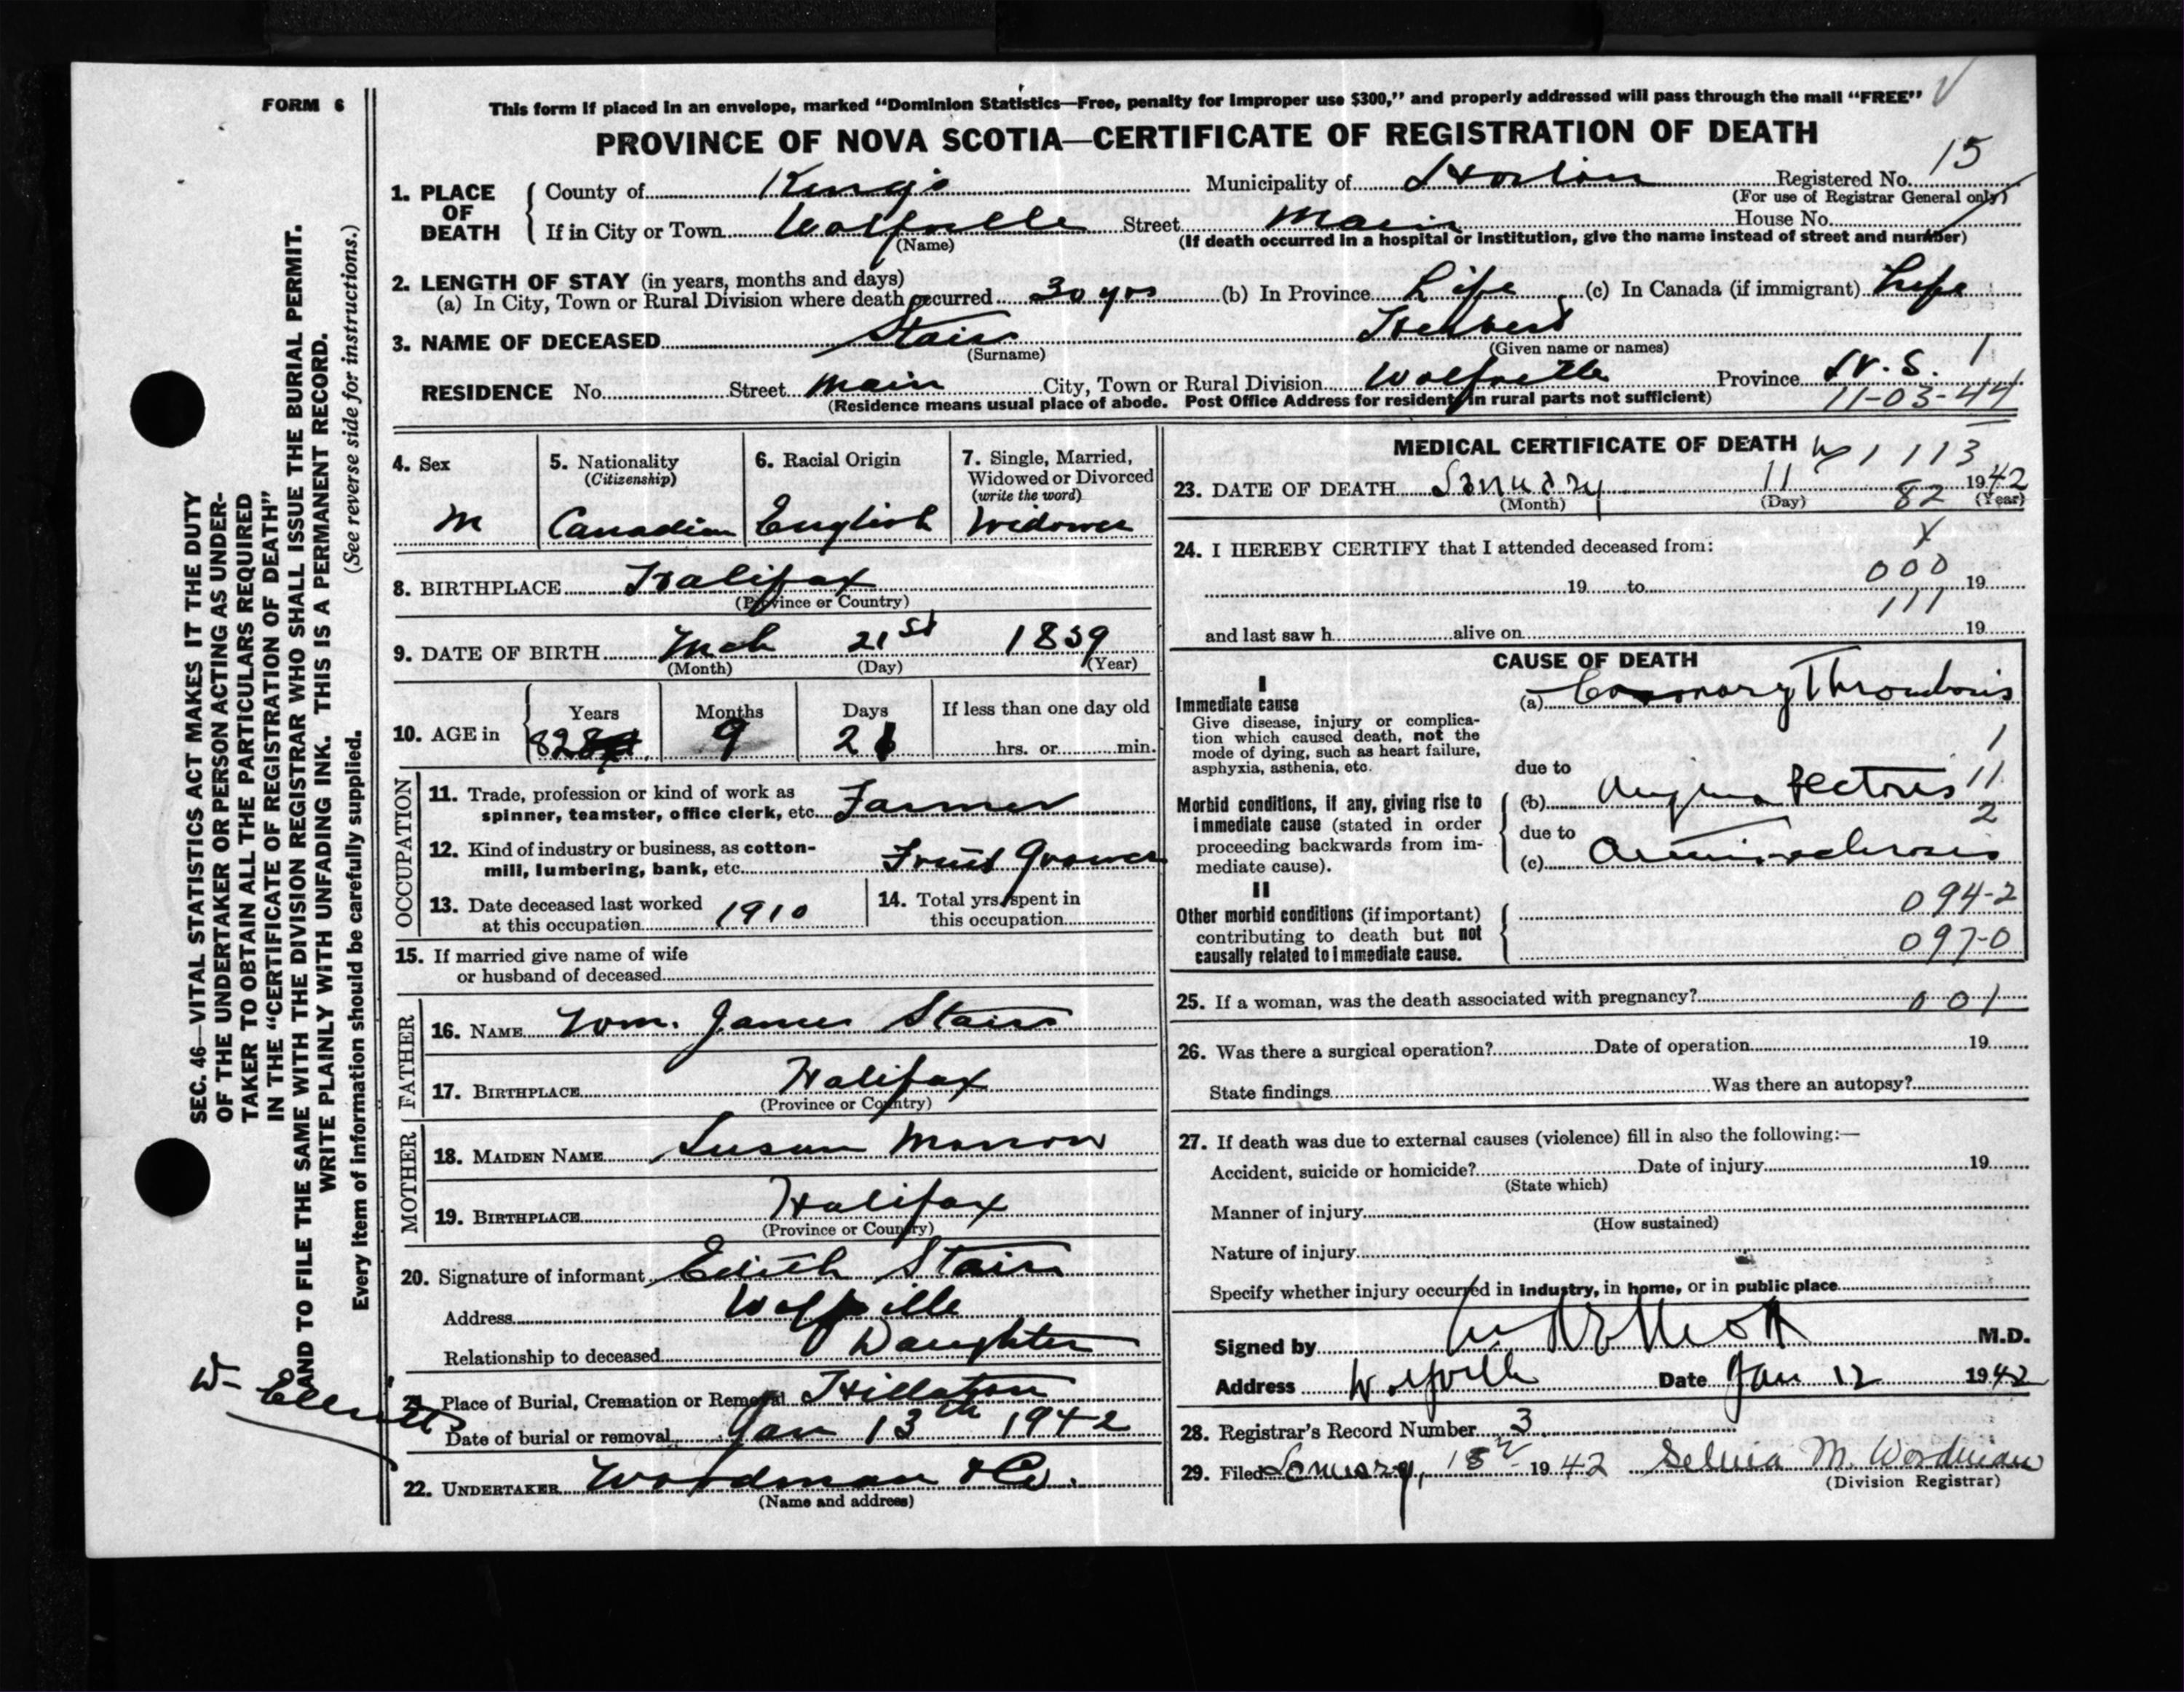 FORM 6
This form if placed in an envelope, marked “Dominion Statistics—Free, penalty for improper use $300,” and properly addressed will pass through the mail “FREE”
PROVINCE OF NOVA SCOTIA—CERTIFICATE OF REGISTRATION OF DEATH
15
1. PLACE OF DEATH
County of Kings Municipality of Horton Registered No.
(For use of Registrar General only)
If in City or Town Wolfville Street Main House No.
(Name) (If death occurred in a hospital or institution, give the name instead of street and number)
2. LENGTH OF STAY (in years, months and days)
(a) In City, Town or Rural Division where death occurred 30 yrs (b) In Province Life (c) In Canada (if immigrant) Life
3. NAME OF DECEASED Stairs Herbert
(Surname) (Given name or names)
RESIDENCE No. Street Main City, Town or Rural Division Wolfville Province N.S. 1
(Residence means usual place of abode. Post Office Address for residents in rural parts not sufficient) 11-03-44
4. Sex M
5. Nationality (Citizenship) Canadian
6. Racial Origin English
7. Single, Married, Widowed or Divorced (write the word) Widower
8. BIRTHPLACE Halifax
(Province or Country)
9. DATE OF BIRTH Mch 21st 1859
(Month) (Day) (Year)
10. AGE in Years Months Days If less than one day old
82 9 21 hrs. or min.
OCCUPATION
11. Trade, profession or kind of work as spinner, teamster, office clerk, etc. Farmer
12. Kind of industry or business, as cotton-mill, lumbering, bank, etc. Fruit Grower
13. Date deceased last worked at this occupation 1910
14. Total yrs. spent in this occupation
15. If married give name of wife or husband of deceased
FATHER
16. NAME Wm. James Stairs
17. BIRTHPLACE Halifax
(Province or Country)
MOTHER
18. MAIDEN NAME Susan Morrow
19. BIRTHPLACE Halifax
(Province or Country)
20. Signature of informant Edith Stairs
Address Wolfville
Relationship to deceased Daughter
21. Place of Burial, Cremation or Removal Hillaton
Date of burial or removal Jan 13th 1942
22. UNDERTAKER Woodman & Co.
(Name and address)
MEDICAL CERTIFICATE OF DEATH 1113
23. DATE OF DEATH January 11 1942
(Month) (Day) 82 (Year)
24. I HEREBY CERTIFY that I attended deceased from: X
19 to 000 19
111
and last saw h alive on 19
CAUSE OF DEATH
I
Immediate cause
Give disease, injury or complication which caused death, not the mode of dying, such as heart failure, asphyxia, asthenia, etc.
(a) Coronary Thrombosis
1
due to
(b) Angina Pectoris 11
2
Morbid conditions, if any, giving rise to immediate cause (stated in order proceeding backwards from immediate cause).
due to
(c) Arteriosclerosis
II
Other morbid conditions (if important) contributing to death but not causally related to immediate cause.
094-2
097-0
25. If a woman, was the death associated with pregnancy? 001
26. Was there a surgical operation? Date of operation 19
State findings Was there an autopsy?
27. If death was due to external causes (violence) fill in also the following:—
Accident, suicide or homicide? Date of injury 19
(State which)
Manner of injury
(How sustained)
Nature of injury
Specify whether injury occurred in industry, in home, or in public place
Signed by M.D.
Address Wolfville Date Jan 12 1942
28. Registrar's Record Number 3
29. Filed January, 1942 M. Woodman
(Division Registrar)
SEC. 46—VITAL STATISTICS ACT MAKES IT THE DUTY
OF THE UNDERTAKER OR PERSON ACTING AS UNDER-
TAKER TO OBTAIN ALL THE PARTICULARS REQUIRED
IN THE “CERTIFICATE OF REGISTRATION OF DEATH”
AND TO FILE THE SAME WITH THE DIVISION REGISTRAR WHO SHALL ISSUE THE BURIAL PERMIT.
WRITE PLAINLY WITH UNFADING INK. THIS IS A PERMANENT RECORD.
(See reverse side for instructions.)
Every item of information should be carefully supplied.
W- Elliott